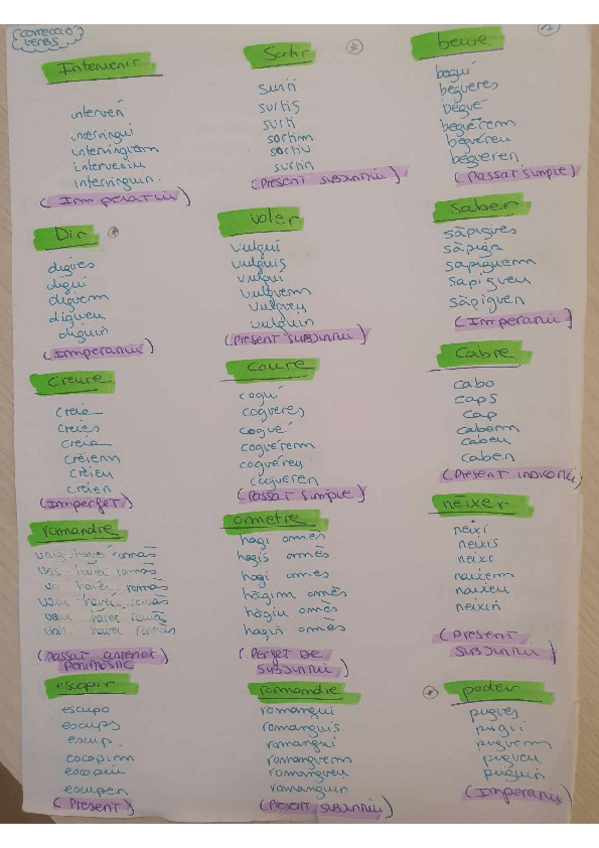 CORRECCIÓ
VERBS
Intervenir
intervén
intervingui
intervinguem
interveniu
intervinguin.
(Imperatiu)
Sortir
surti
surtis
surti
sortim
sortiu
surtin
(Present subjuntiu)
beure
beguí
begueres
begué
beguérem
beguéreu
begueren
(Passat simple)
Dir
digues
digui
diguem
digueu
diguin
(Imperatiu)
Voler
vulgui
vulguis
vulgui
vulguem
vulgueu
vulguin
(Present subjuntiu)
Saber
sàpigues
sàpiga
sapiguem
sapigueu
sàpiguen
(Imperatiu)
Creure
creia
creies
creia
crèiem
crèieu
creien
(Imperfet)
Coure
coguí
cogueres
cogué
coguérem
coguéreu
cogueren
(Passat simple)
Cabre
cabo
caps
cap
cabem
cabeu
caben
(Present indicatiu)
romandre
vaig haver romàs
vas haver romàs
va haver romàs
vam haver romàs
vau haver romàs
van haver romàs
(Passat anterior
perifràstic
ometre
hagi omès
hagis omès
hagi omès
hàgim omès
hàgiu omès
hagin omès
(Perfet de
subjuntiu)
néixer
neixi
neixis
neixi
naixem
naixeu
neixin
(Present
subjuntiu)
escopir
escupo
escups
escup.
escopim
escopiu
escupen
(Present)
romandre
romangui
romanguis
romangui
romanguem
romangueu
romanguin
(Present subjuntiu)
poder
pugues
pugui
puguem
pugueu
puguin
(Imperatiu)